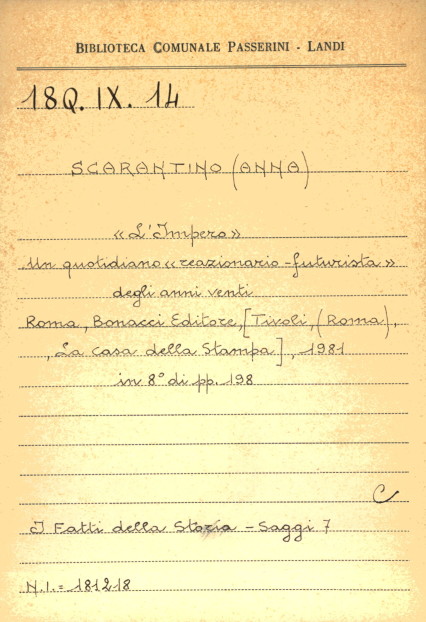 BIBLIOTECA COMUNALE PASSERINI - LANDI
18Q. IX. 14
SCARANTINO (ANNA)
«L'Impero»
Un quotidiano «reazionario-futurista»
degli anni venti
Roma, Bonacci Editore, [Tivoli, (Roma),
, La casa della Stampa], 1981
in 8° di pp. 198
C
I Fatti della Storia - Saggi 7
N.I. = 181218